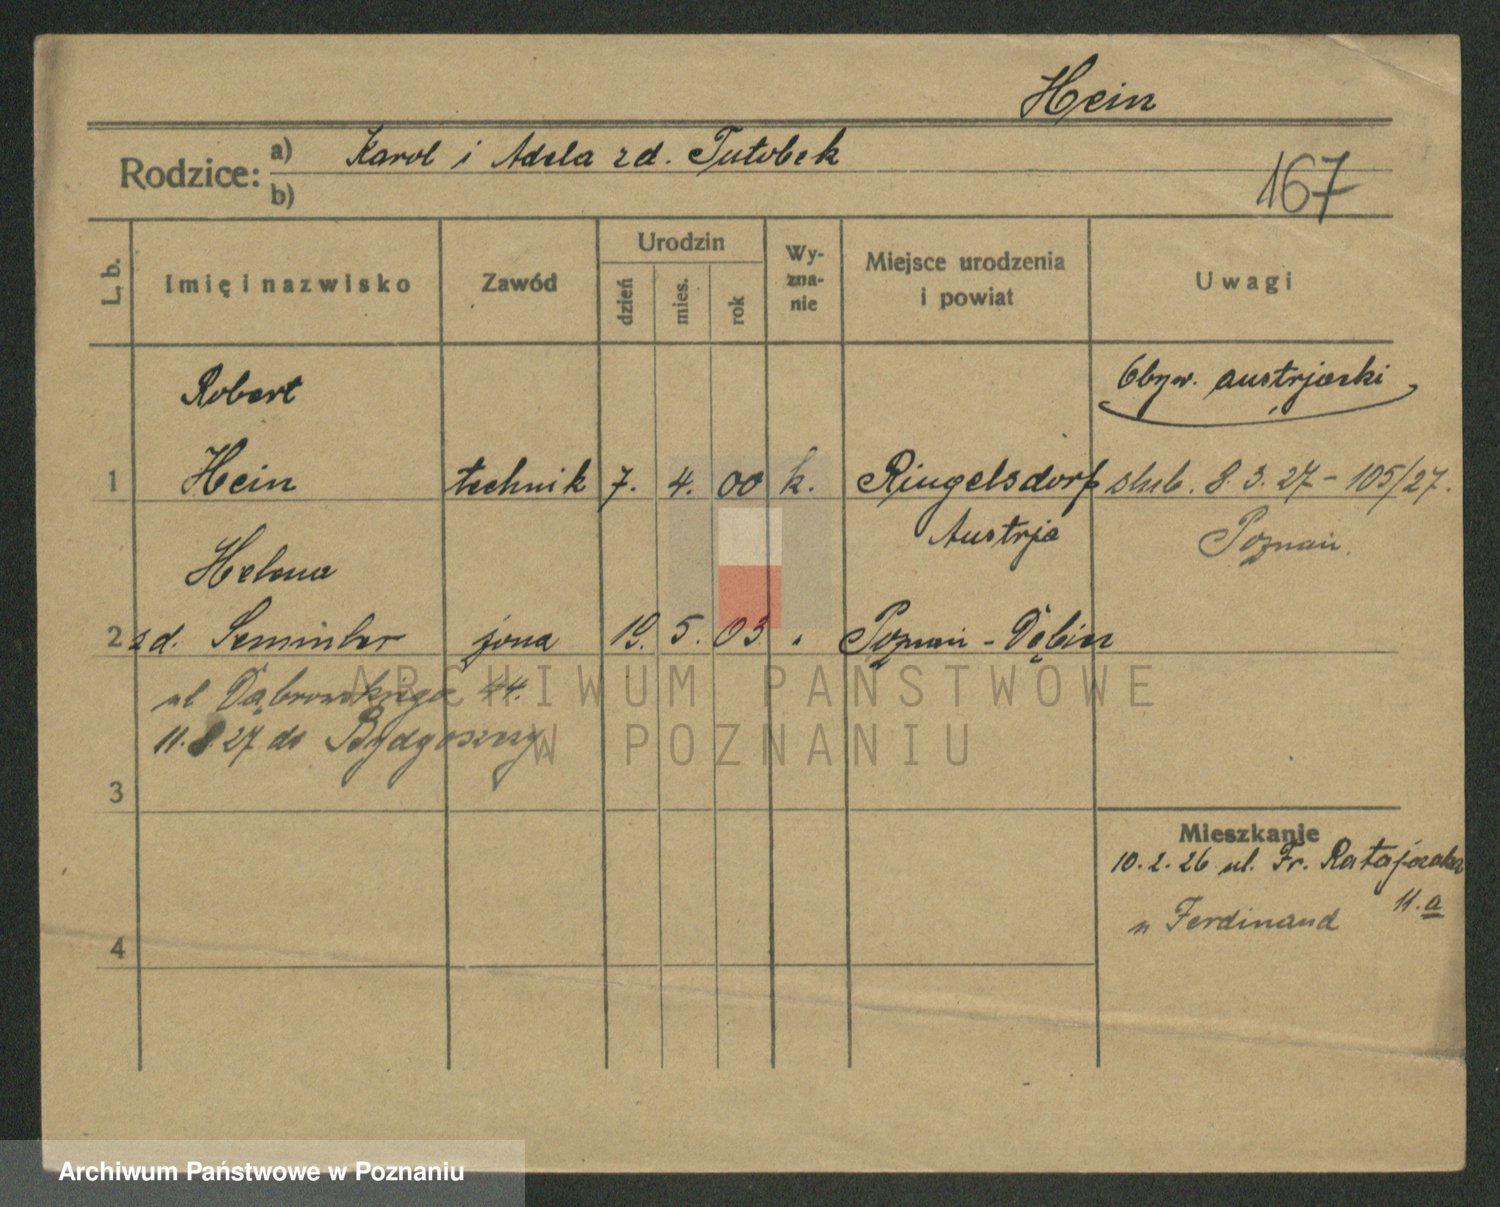 Hein
Rodzice: a) Karol i Adela zd. Tutobek
b)
167
L. b.
Imię i nazwisko
Zawód
Urodzin
dzień
mies.
rok
Wy-
zna-
nie
Miejsce urodzenia
i powiat
Uwagi
Robert
Obyw. austrjacki
1 Hein technik 7. 4. 00 k. Ringelsdorf ślub. 8.3.27 - 105/27.
Austrja Poznań.
Helena
2 zd. Seminler żona 19. 5. 03. " Poznań - Dębiec
ul Dąbrowskiego 44.
11.8.27 do Bydgoszczy
3
Mieszkanie
10.2.26 ul. Fr. Ratajczaka
11.a
u Ferdinand
4
ARCHIWUM PAŃSTWOWE
W POZNANIU
Archiwum Państwowe w Poznaniu